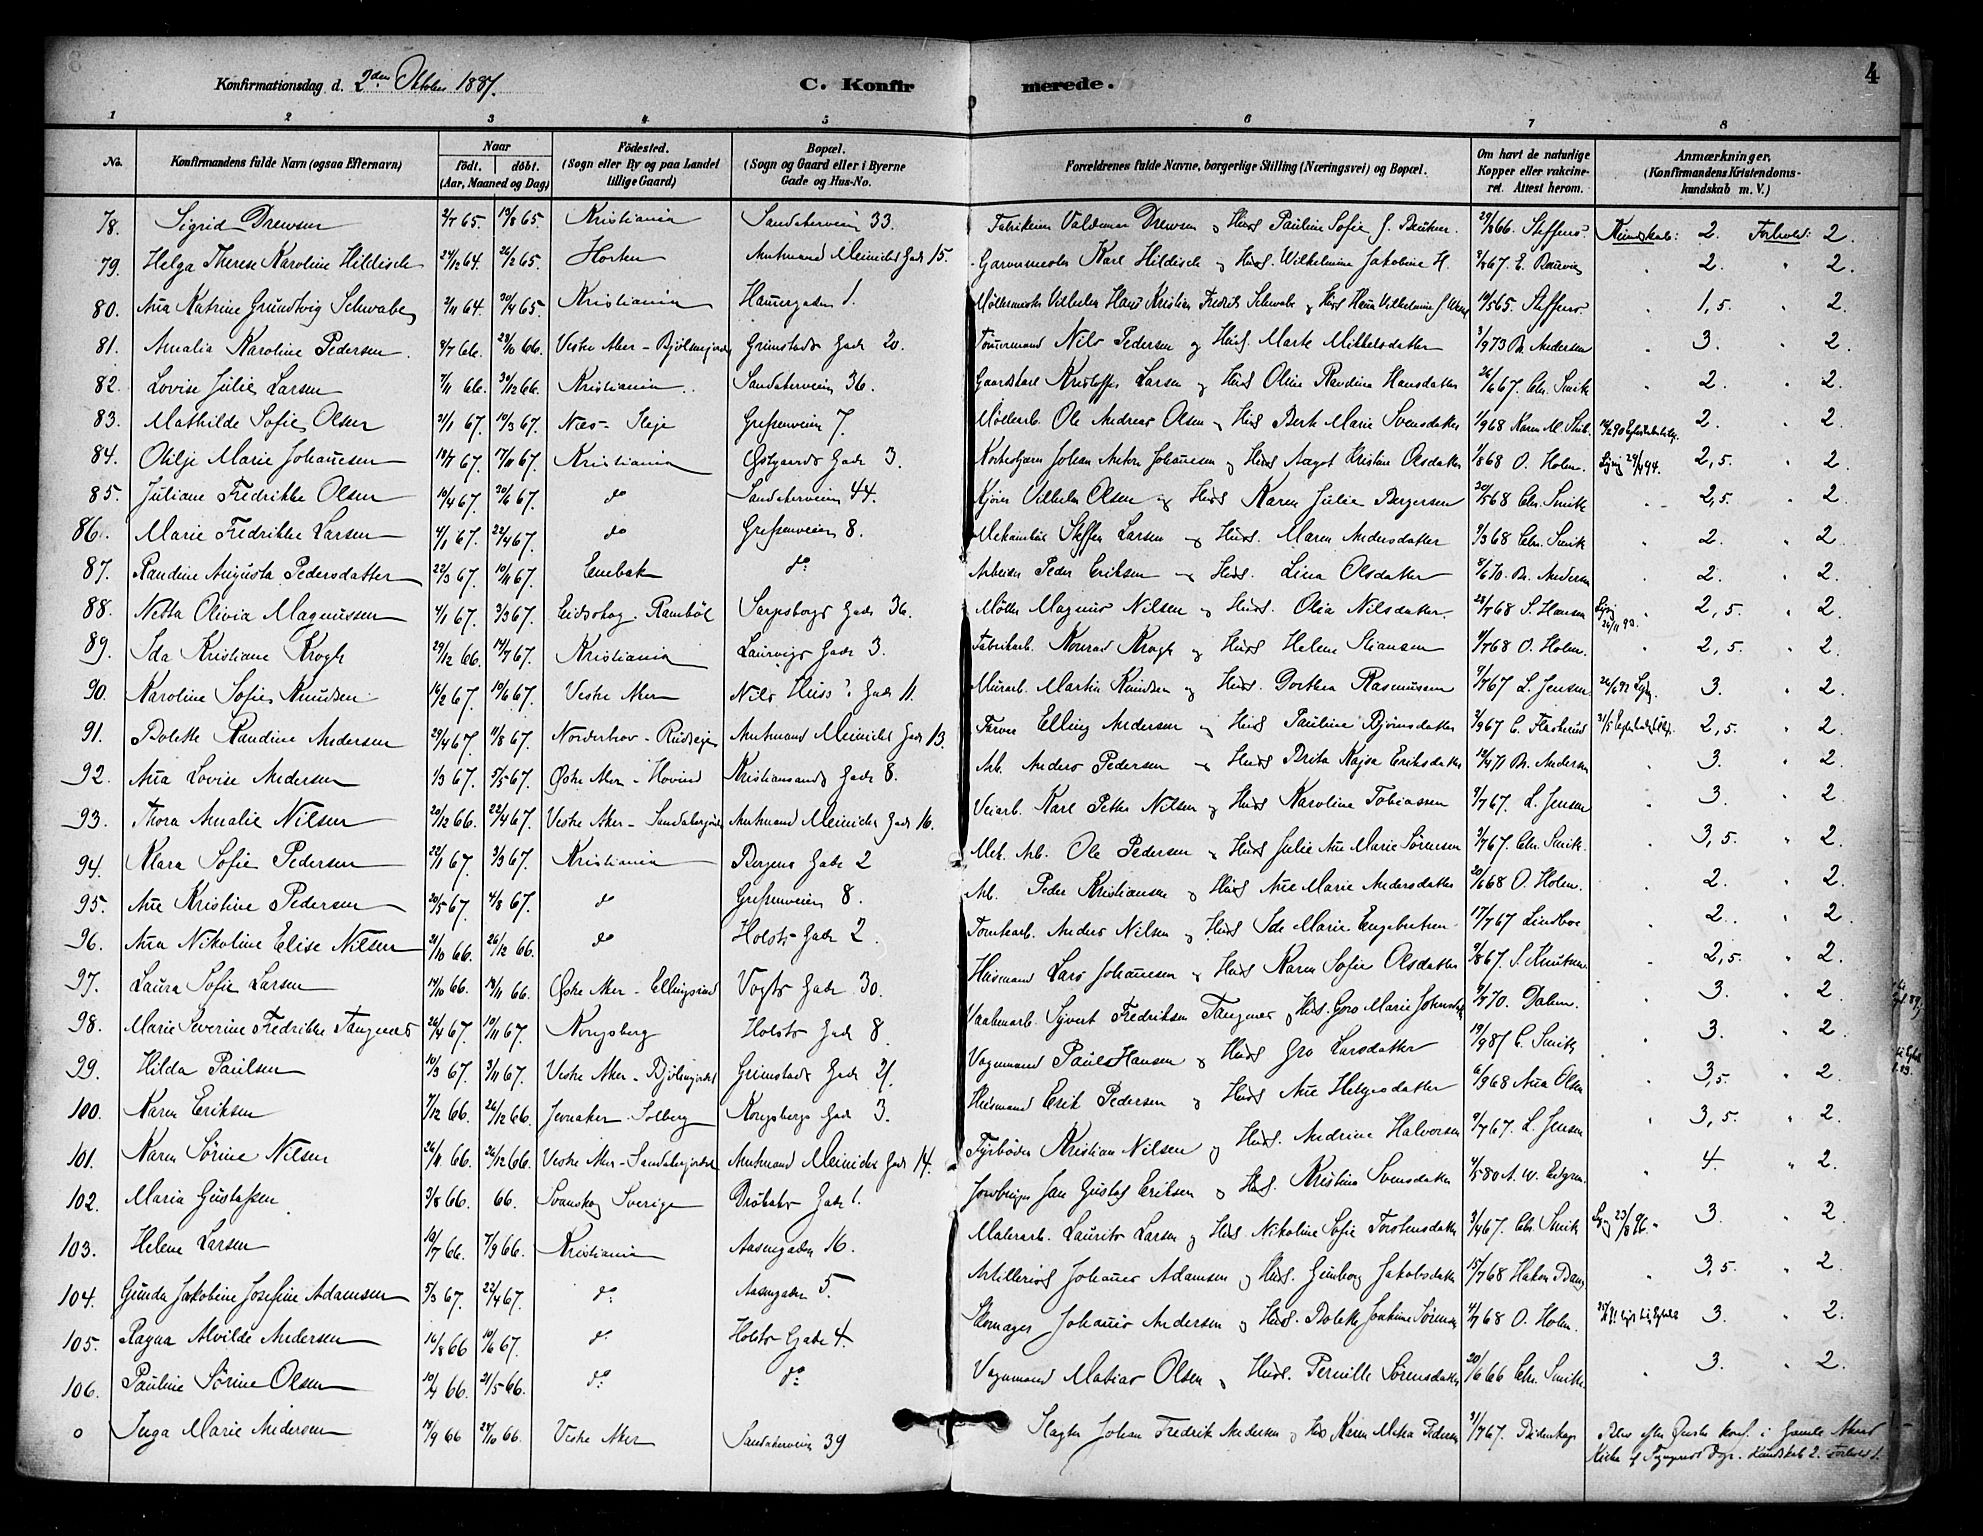 Konfirmationsdag d. 2den Oktober 1881. C. Konfirmerede. 4
1 2 3 4 5 6 7 8
No. Konfirmandens fulde Navn (ogsaa Efternavn) Naar født. døbt. (Aar, Maaned og Dag) Fødested. (Sogn eller By og paa Landet tillige Gaard) Bopæl. (Sogn og Gaard eller i Byerne Gade og Hus-No. Forældrenes fulde Navne, borgerlige Stilling (Næringsvei) og Bopæl. Om havt de naturlige Kopper eller vaccineret. Attest herom. Anmærkninger. (Konfirmandens Kristendomskundskab m. V.)
78. Sigrid Drewsen 2/7 65. 19/8 65. Kristiania Sandakerveien 33. Valdemar Drewsen og Hust. Pauline Sofie f. 66. Steffens. Kundskab: 2. Forhold: 2.
79. Helga Therese Karoline Hildisch 24/12 64. 26/2 65. Horten Amtmand Meinichs Gade 15. Garvermester Karl Hildisch og Hust. Wilhelmine Jakobine H. 67. E. 2. " 2.
80. Ana Katrine Grundtvig Schwabe 2/11 64. 30/4 65. Kristiania Hausergaden 1. Møllermester Vilhelm Hans Kristian Fredrik Schwabe og Hust. Hana Vilhelmine f. 19/5 65. Steffens. 1,5. " 2.
81. Amalia Karoline Pedersen. 8/7 66. 28/10 66. Vestre Aker - Bjölsenjordet Grimstads Gade 20. Tömmermand Nils Pedersen og Hust. Marte Mikkelsdatter 3/9 73 Br. Andersen 3. 2.
82. Lovise Julie Larsen 7/11 66. 30/12 66. Kristiania. Sandakerveien 36. Gaardskarl Kristoffer Larsen og Hust. Oline Randine Hansdatter 26/6 67. Chr. Smith 2. 2.
83. Mathilde Sofie Olsen 21/1 67. 10/3 67. Næs - Grefsenveien 7. Møllearb. Ole Andreas Olsen og Hust. Berte Marie Svensdatter 1/9 68 Karen M. 2. 2.
84. Otilje Marie Johansen 67. 17/11 67. Kristiania Østgaards Gade 3. Johan Anton Johansen og Hust. Aagot Kristine Olsdatter 1/8 68 O. Holm. 29/4 94. 2,5. " 2.
85. Juliane Fredrikke Olsen 10/4 67. 30/6 67. do Sandakerveien 44. Vilhelm Olsen og Hust. Karen Julie Bergersen 20/5 68 Chr. Smith 2,5. " 2.
86. Marie Fredrikke Larsen 4/1 67. 22/4 67. do Grefsenveien 8. Steffen Larsen og Hust. Maren Andersdatter 3/3 68 Chr. Smith 2. " 2.
87. Randine Augusta Pedersdatter 22/3 67. 10/11 67. Enebak do. Arbeider Peder Eriksen og Hust. Lina Olsdatter 8/6 70. Br. Andersen 2. " 2.
88. Netta Olivia Magnussen 4/1 67. 3/3 67. Eidskog - Rambøl Sarpsborgs Gade 36. Møller Magnus Nilsen og Hust. Olia Nilsdatter. 28/7 68 S. Hansen 2,5. " 2.
89. Ida Kristiane Krogh 29/12 66. 14/7 67. Kristiania Laurvigs Gade 3. Fabrikarb. Konrad Krogh og Hust. Helene Stiansen 68 O. Holm. 2,5. " 2.
90. Karoline Sofie Knudsen 14/2 67. 19/6 67. Vestre Aker Nils Huss? Gade 11. Murarb. Martin Knudsen og Hust. Dorthea Rasmussen 9/7 67 L. Jensen 3. " 2.
91. Bolette Randine Andersen 29/4 67. 11/8 67. Norderhov - Amtmand Meinichs Gade 13. Farver Elling Andersen og Hust. Pauline Björnsdatter 67 C. 2,5. " 2.
92. Ana Lovise Andersen 1/3 67. 5/5 67. Østre Aker - Hovind Kristiansands Gade 8. Arb. Anders Pedersen og Hust. Brita Kajsa Eriksdatter 12/4 71 Br. Andersen 3. " 2.
93. Thora Amalie Nilsen 20/12 66. 22/4 67. Vestre Aker - Sandakerjordet Amtmand Meinichs Gade 16. Veiarb. Karl Petter Nilsen og Hust. Karoline Tobiassen 9/7 67. L. Jensen 3. " 2.
94. Klara Sofie Pedersen 22/1 67. 3/3 67. Kristiania Bergens Gade 2 Mek. Arb. Ole Pedersen og Hust. Julie Ane Marie Sörensen 67. Chr. Smith. 3,5. " 2.
95. Ane Kristine Pedersen 20/5 67. 4/8 67. do Grefsenveien 8. Arb. Peder Kristiansen og Hust. Ane Marie Andersdatter 20/6 68 O. Holm. 2. " 2.
96. Ana Nikoline Elise Nilsen 21/10 66. 26/12 66. do Holsts Gade 2. Tomtearb. Anders Nilsen og Hust. Ida Marie Engebretsen 17/7 67 Lindboe 2. " 2.
97. Laura Sofie Larsen 14/10 66. 18/11 66. Østre Aker - Ellingsrud Vogts Gade 30. Husmand Lars Johannesen og Hust. Karen Sofie Olsdatter 67. S. Knutsen 2,5. " 2.
98. Marie Severine Fredrikke Tangenes 26/4 67. 10/11 67. Kongsberg Holsts Gade 8. Vaabenarb. Syvert Fredriksen Tangenes og Hust. Goro Marie 70. Dahm. 3. " 2.
99. Hilda Paulsen 10/3 67. 3/11 67. Vestre Aker - Bjölsenjordet Grimstads Gade 21. Vognmand Paul Hansen og Hust. Gro Larsdatter 19/9 81 C. Smith 3. " 2.
100. Karen Eriksen 7/12 66. 26/12 66. Jevnaker - Solberg Kongsbergs Gade 3. Husmand Erik Pedersen og Hust. Ane Helgesdatter 6/9 68 Ana Olsen 3,5. " 2.
101. Karen Sörine Nilsen 26/11 66. 26/12 66. Vestre Aker - Sandakerjordet Amtmand Meinichs Gade 14. Fyrbøder Kristian Nilsen og Hust. Andrine Halvorsen 9/7 67. L. Jensen 3,5. " 2.
102. Maria Gustafsen 3/8 66. 66. Svanskog Sverige Drøbaks Gade 1. Jan Gustaf Eriksen og Hust. Kristina Svensdatter 4/5 80 A. W. 4. " 2.
103. Helene Larsen 10/7 66. 7/9 66. Kristiania Aasengaden 16. Malerarb. Laurits Larsen og Hust. Nikoline Sofie Torstensdatter 3/4 67. Chr. Smith 23/8 96. 3. " 2.
104. Gunda Jakobine Josefine Adamsen 5/3 67. 22/4 67. do. Aasengaden 5. Artillerist Johannes Adamsen og Hust. Gunborg Jakobsdatter 15/7 68 Hakon Bang 3,5. " 2.
105. Ragna Alvilde Andersen 16/8 66 10/6 67. do Holsts Gade 4. Skomager Johannes Andersen og Hust. Bolette Joakime Sörensen 4/7 68 O. Holm. 3. " 2.
106. Pauline Sörine Olsen 10/4 66. 21/5 66. do. do. Vognmand Matias Olsen og Hust. Pernille Sörensdatter 20/6 66 Chr. Smith. 3. " 2.
o Inga Marie Andersen 19/9 66 28/10 66. Vestre Aker Sandakerveien 39 Slagter Johan Fredrik Andersen og Hust. Karen Petersen 21/7 67. Blev efter Ønske konf. i Gamle Akers Kirke af Kundskab 2. Forhold 1.